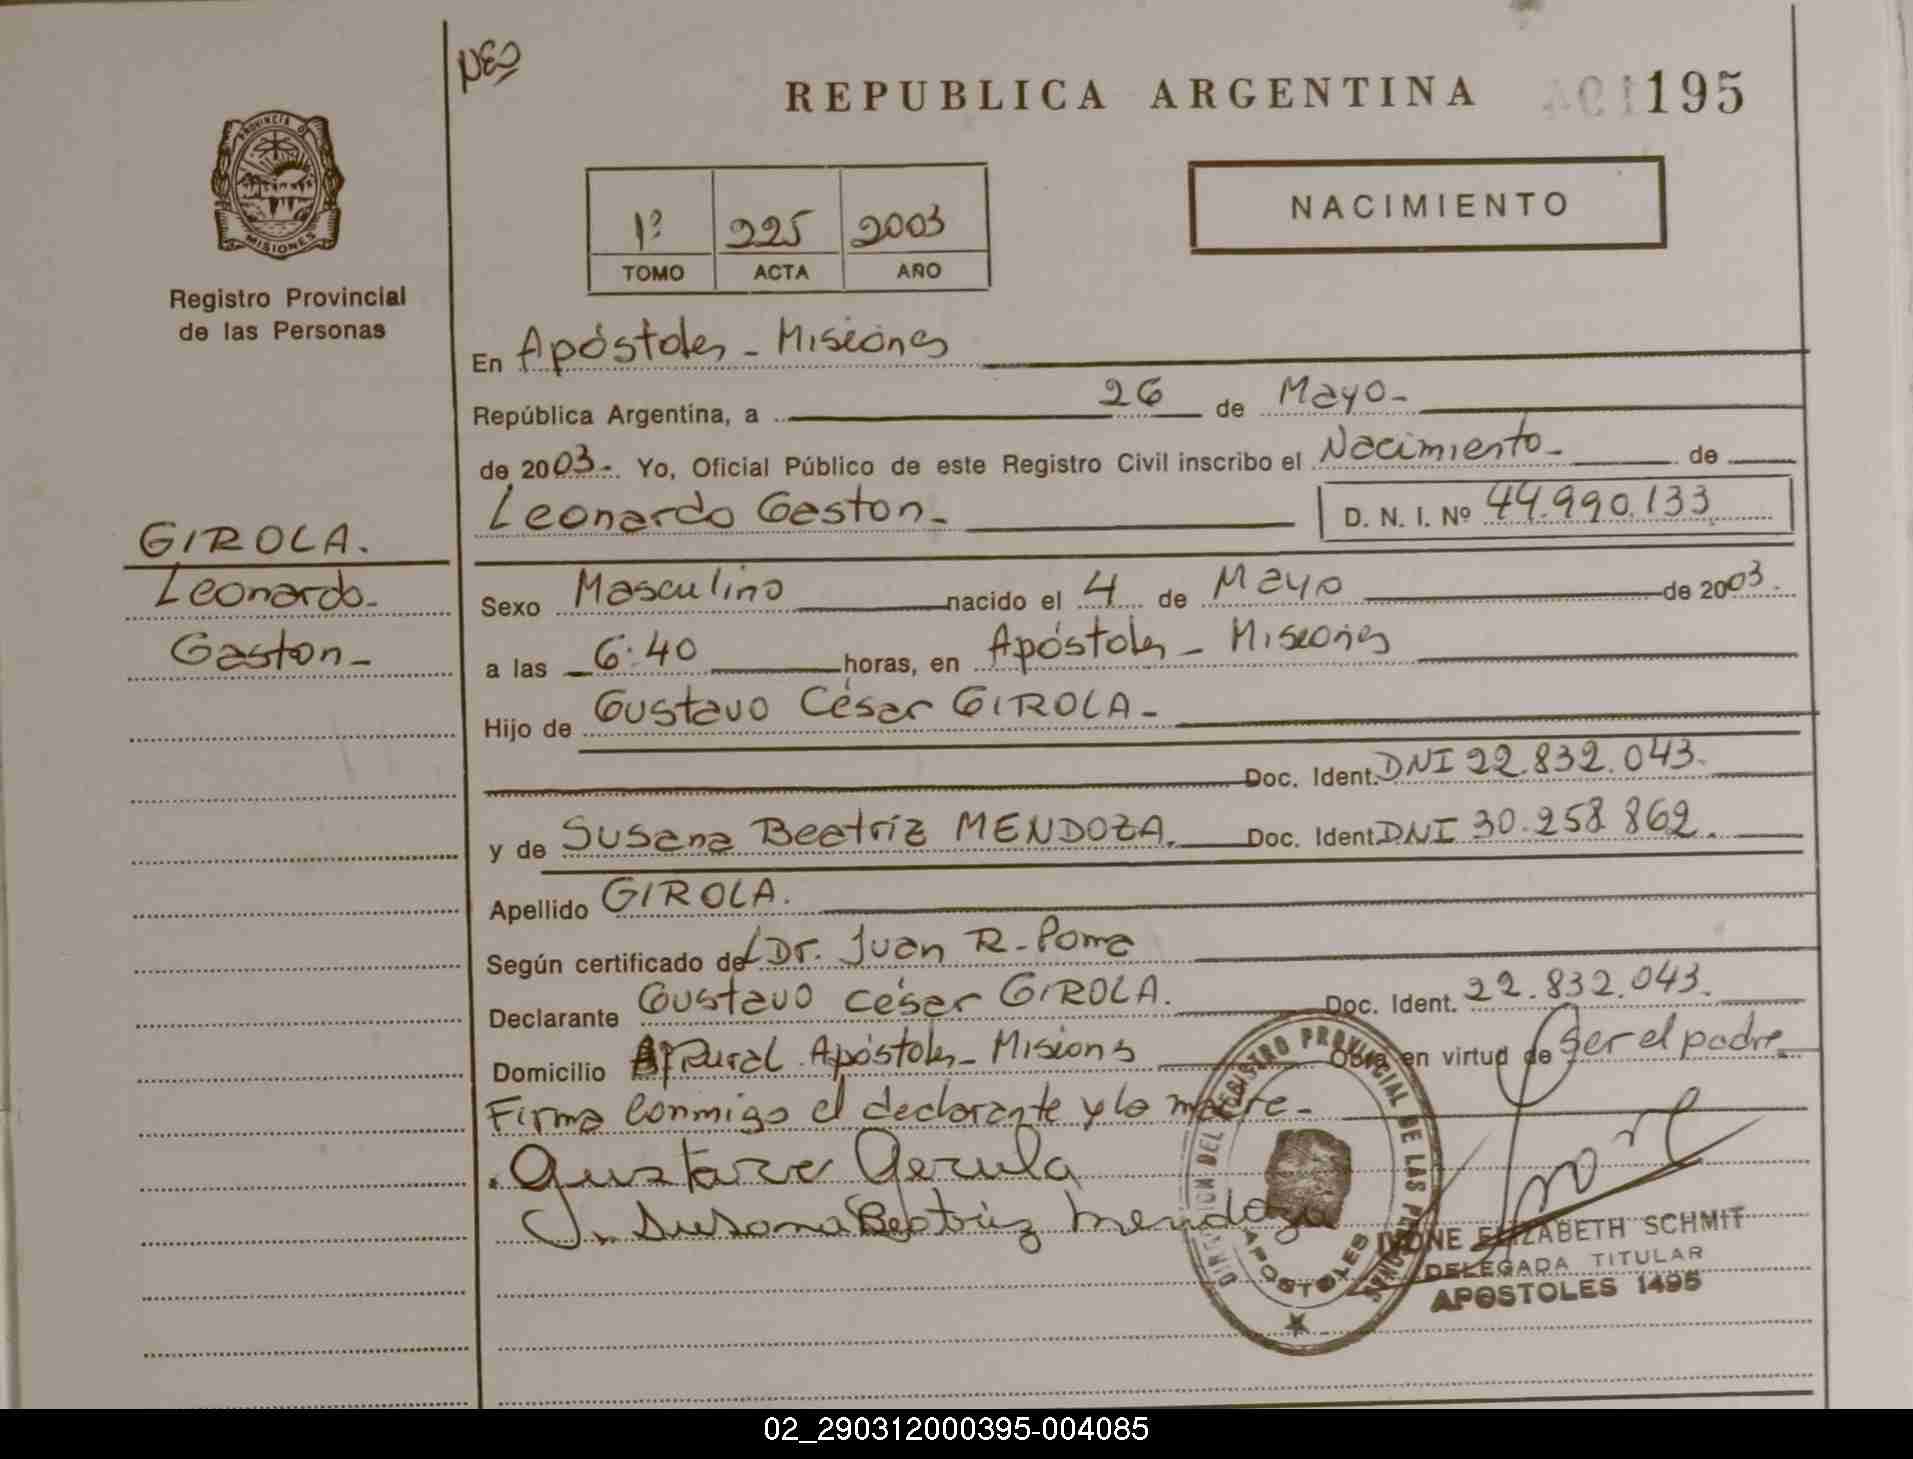 NES
REPUBLICA ARGENTINA 195
PROVINCIA D
MISIONES
Registro Provincial
de las Personas
NACIMIENTO
1º 225 2003
TOMO ACTA AÑO
En Apóstoles - Misiones
República Argentina, a 26 de Mayo -
de 2003 - Yo, Oficial Público de este Registro Civil inscribo el Nacimiento - de
Leonardo Gaston - D. N. I. Nº 44.990.133
GIROLA.
Leonardo -
Gaston -
Sexo Masculino nacido el 4 de Mayo de 2003.
a las 6:40 horas, en Apóstoles - Misiones
Hijo de Gustavo César GIROLA -
Doc. Ident. DNI 22.832.043.
y de Susana Beatriz MENDOZA. Doc. Ident. DNI 30.258.862.
Apellido GIROLA.
Según certificado del Dr. Juan R. Poma
Declarante Gustavo César GIROLA. Doc. Ident. 22.832.043.
Domicilio Rural Apóstoles - Misiones Obra en virtud de Ser el padre
Firma conmigo el declarante y la madre -
Gustavo Gerula
Susana Beatriz Mendoza
DIRECCION DEL REGISTRO PROVINCIAL DE LAS PERSONAS
APOSTOLES
IVONE ELIZABETH SCHMIT
DELEGADA TITULAR
APOSTOLES 1495
02_290312000395-004085